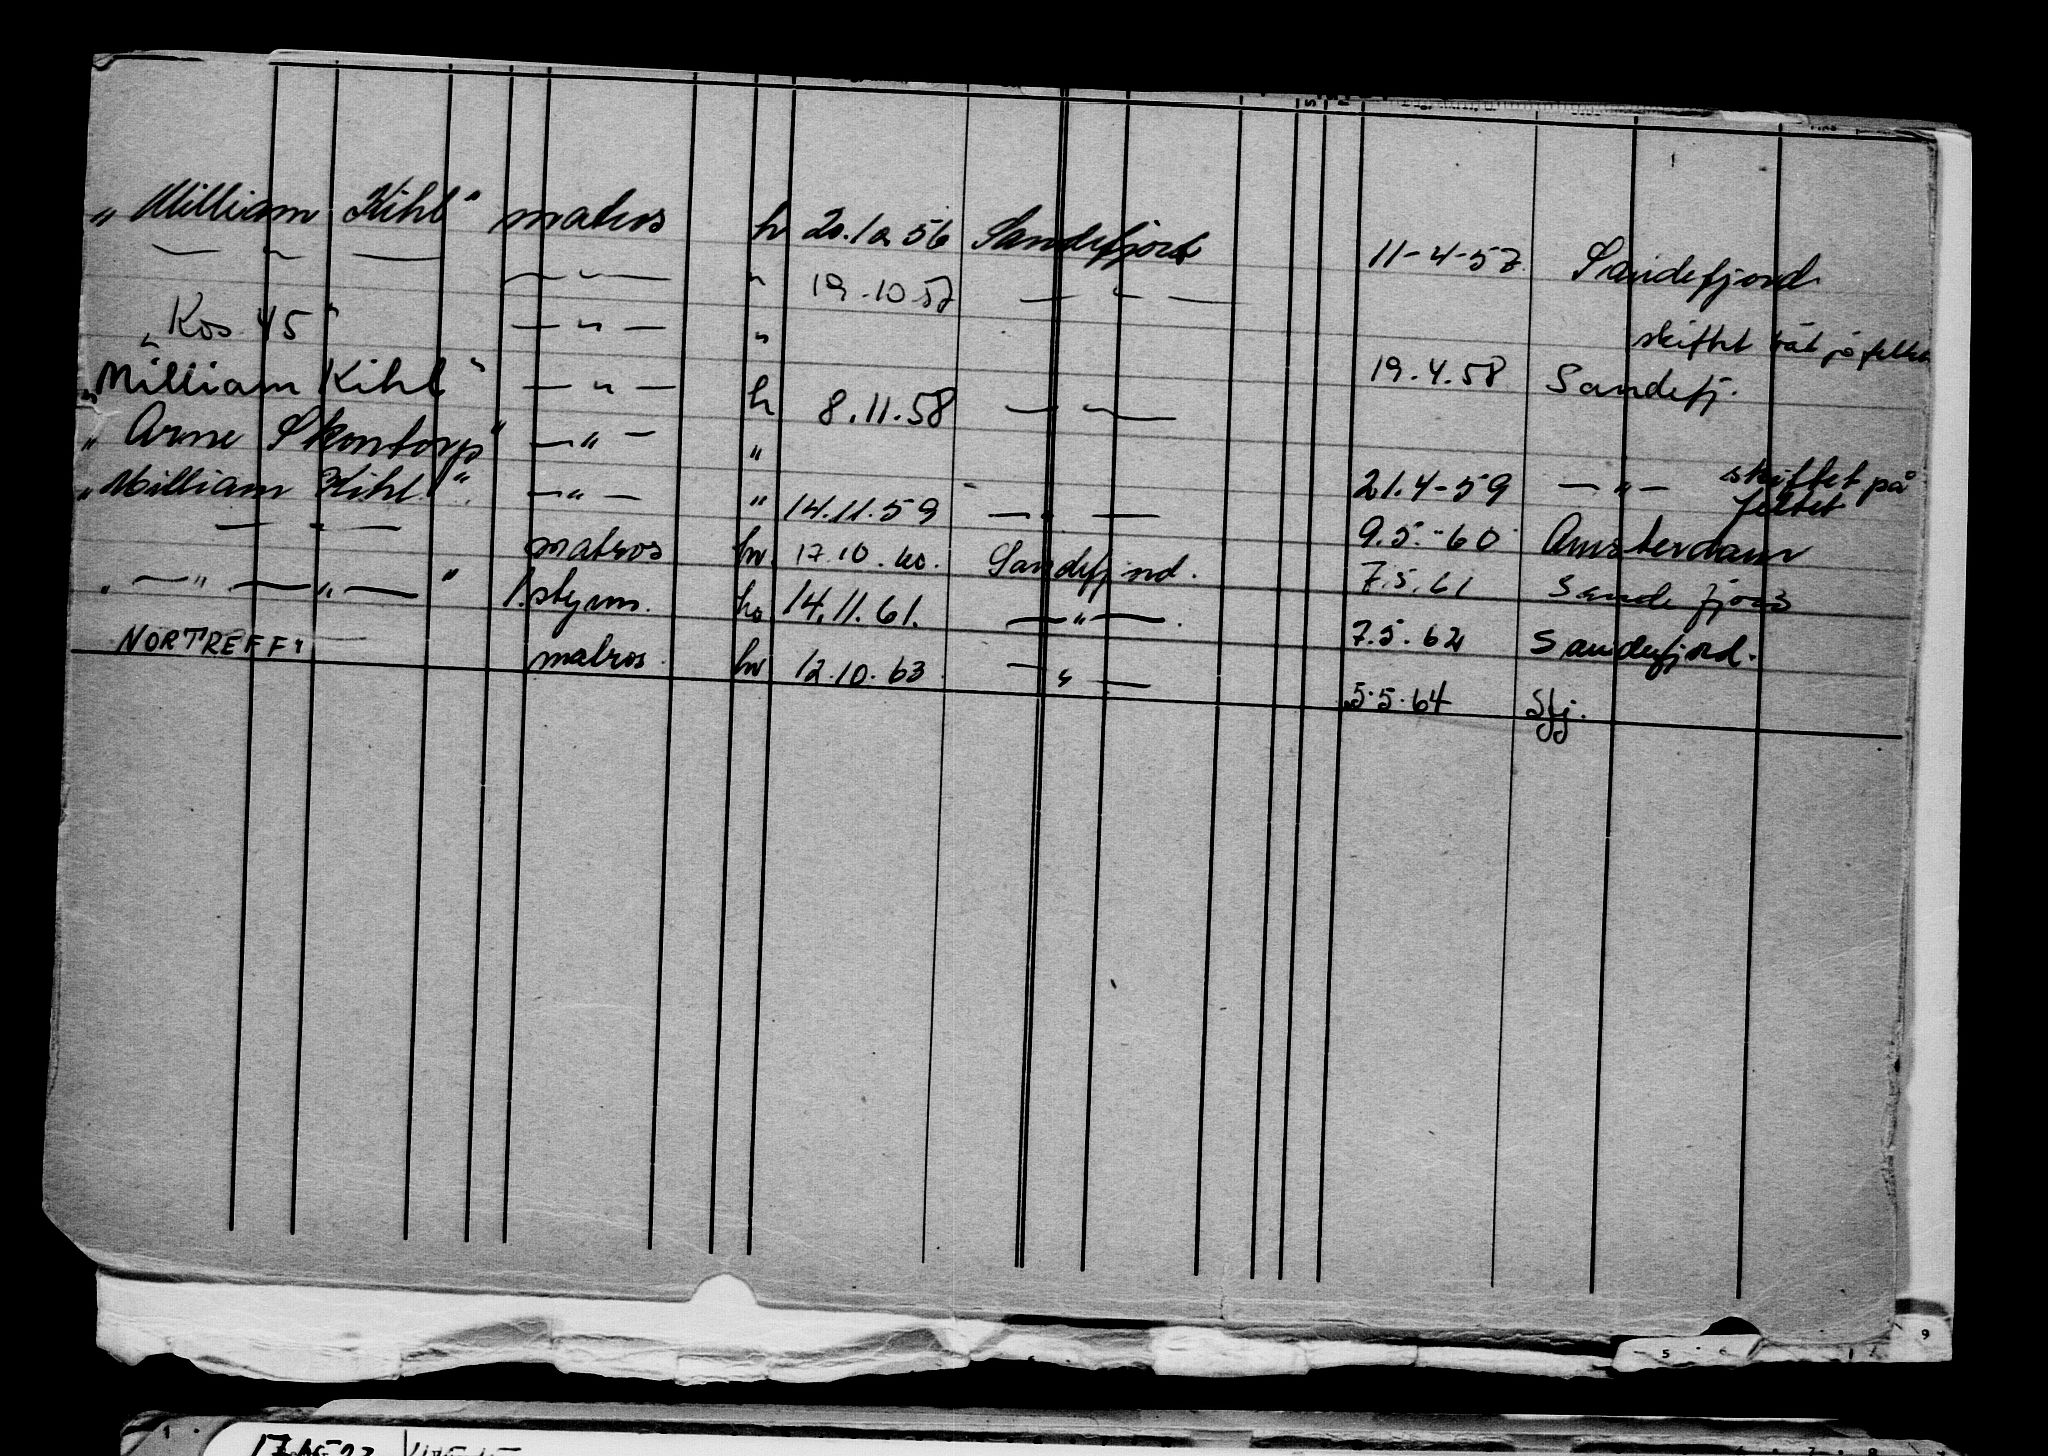 „ William Kihl" matros h 20.10.56 Sandefjord 11-4-57 Sandefjord
— " — — " — " 19.10.57 — " — skiftet båt på feltet
„Kos 45" — " — " 19.4.58 Sandefj.
„William Kihl" — " — h 8.11.58 — " —
„Arne Skontorp" — " — " skiftet på feltet
„William Kihl". — " — " 14.11.59 — " — 21.4-59 — " —
— " — matros hv. 17.10.60. Sandefjord. 9.5.-60 Amsterdam
„ — " — " — " 1.styrm. hv 14.11.61. — " — . 7.5.61 Sandefjord
NORTREFF" matros. hv 12.10.63 — " — 7.5.62 Sandefjord.
5.5.64 Sfj.